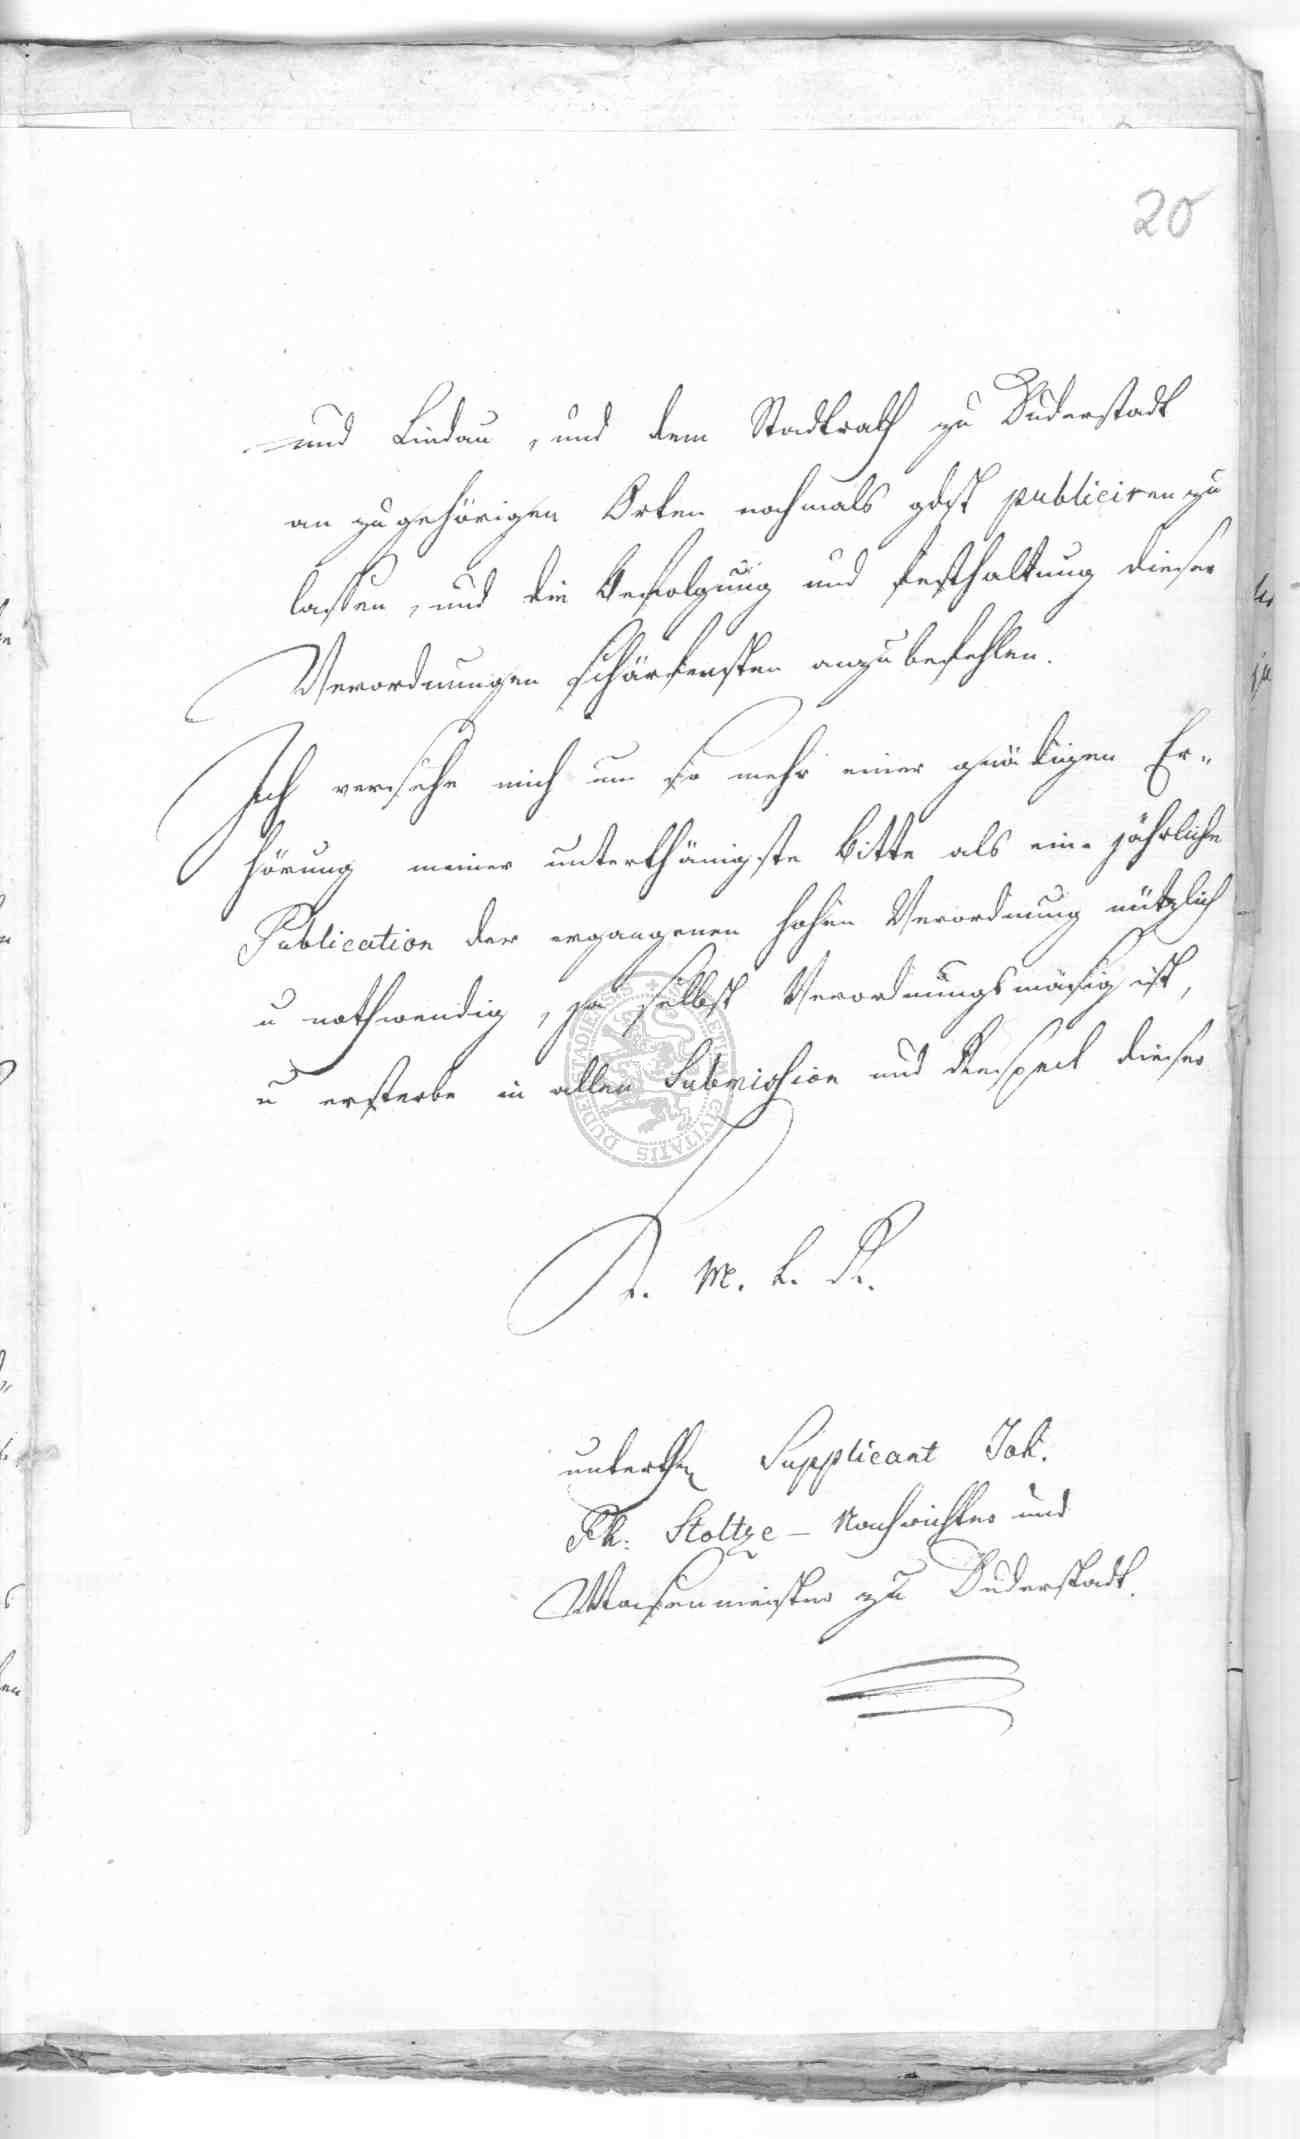 20
und Lindau, und dem Stadtrath zu Duderstadt
an zugehörigen Orten nochmals gdst publiciren zu
lassen, und die Befolgung und Festhaltung dieser
Verordnungen schärfensten anzubefehlen.
Ich versehe mich um so mehr einer gnädigen Er-
hörung meiner unterthänigste Bitte als eine jährliche
Publication der ergangenen hohen Verordnung nützlich
u nothwendig, ja selbst Verordnungsmäsig ist,
u ersterbe in aller Submission und Respect dieser
M. L. R.
unterthg Supplicant Joh.
Ph: Stoltze – Nachrichter und
Wasenmeister zu Duderstadt.